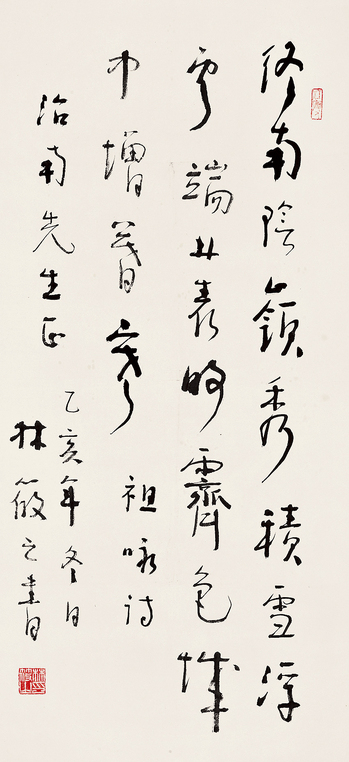 終南陰嶺秀積雪浮
雲端林表明霽色城
中增暮寒 祖咏詩
治南先生正
乙亥年冬日
林筱之書